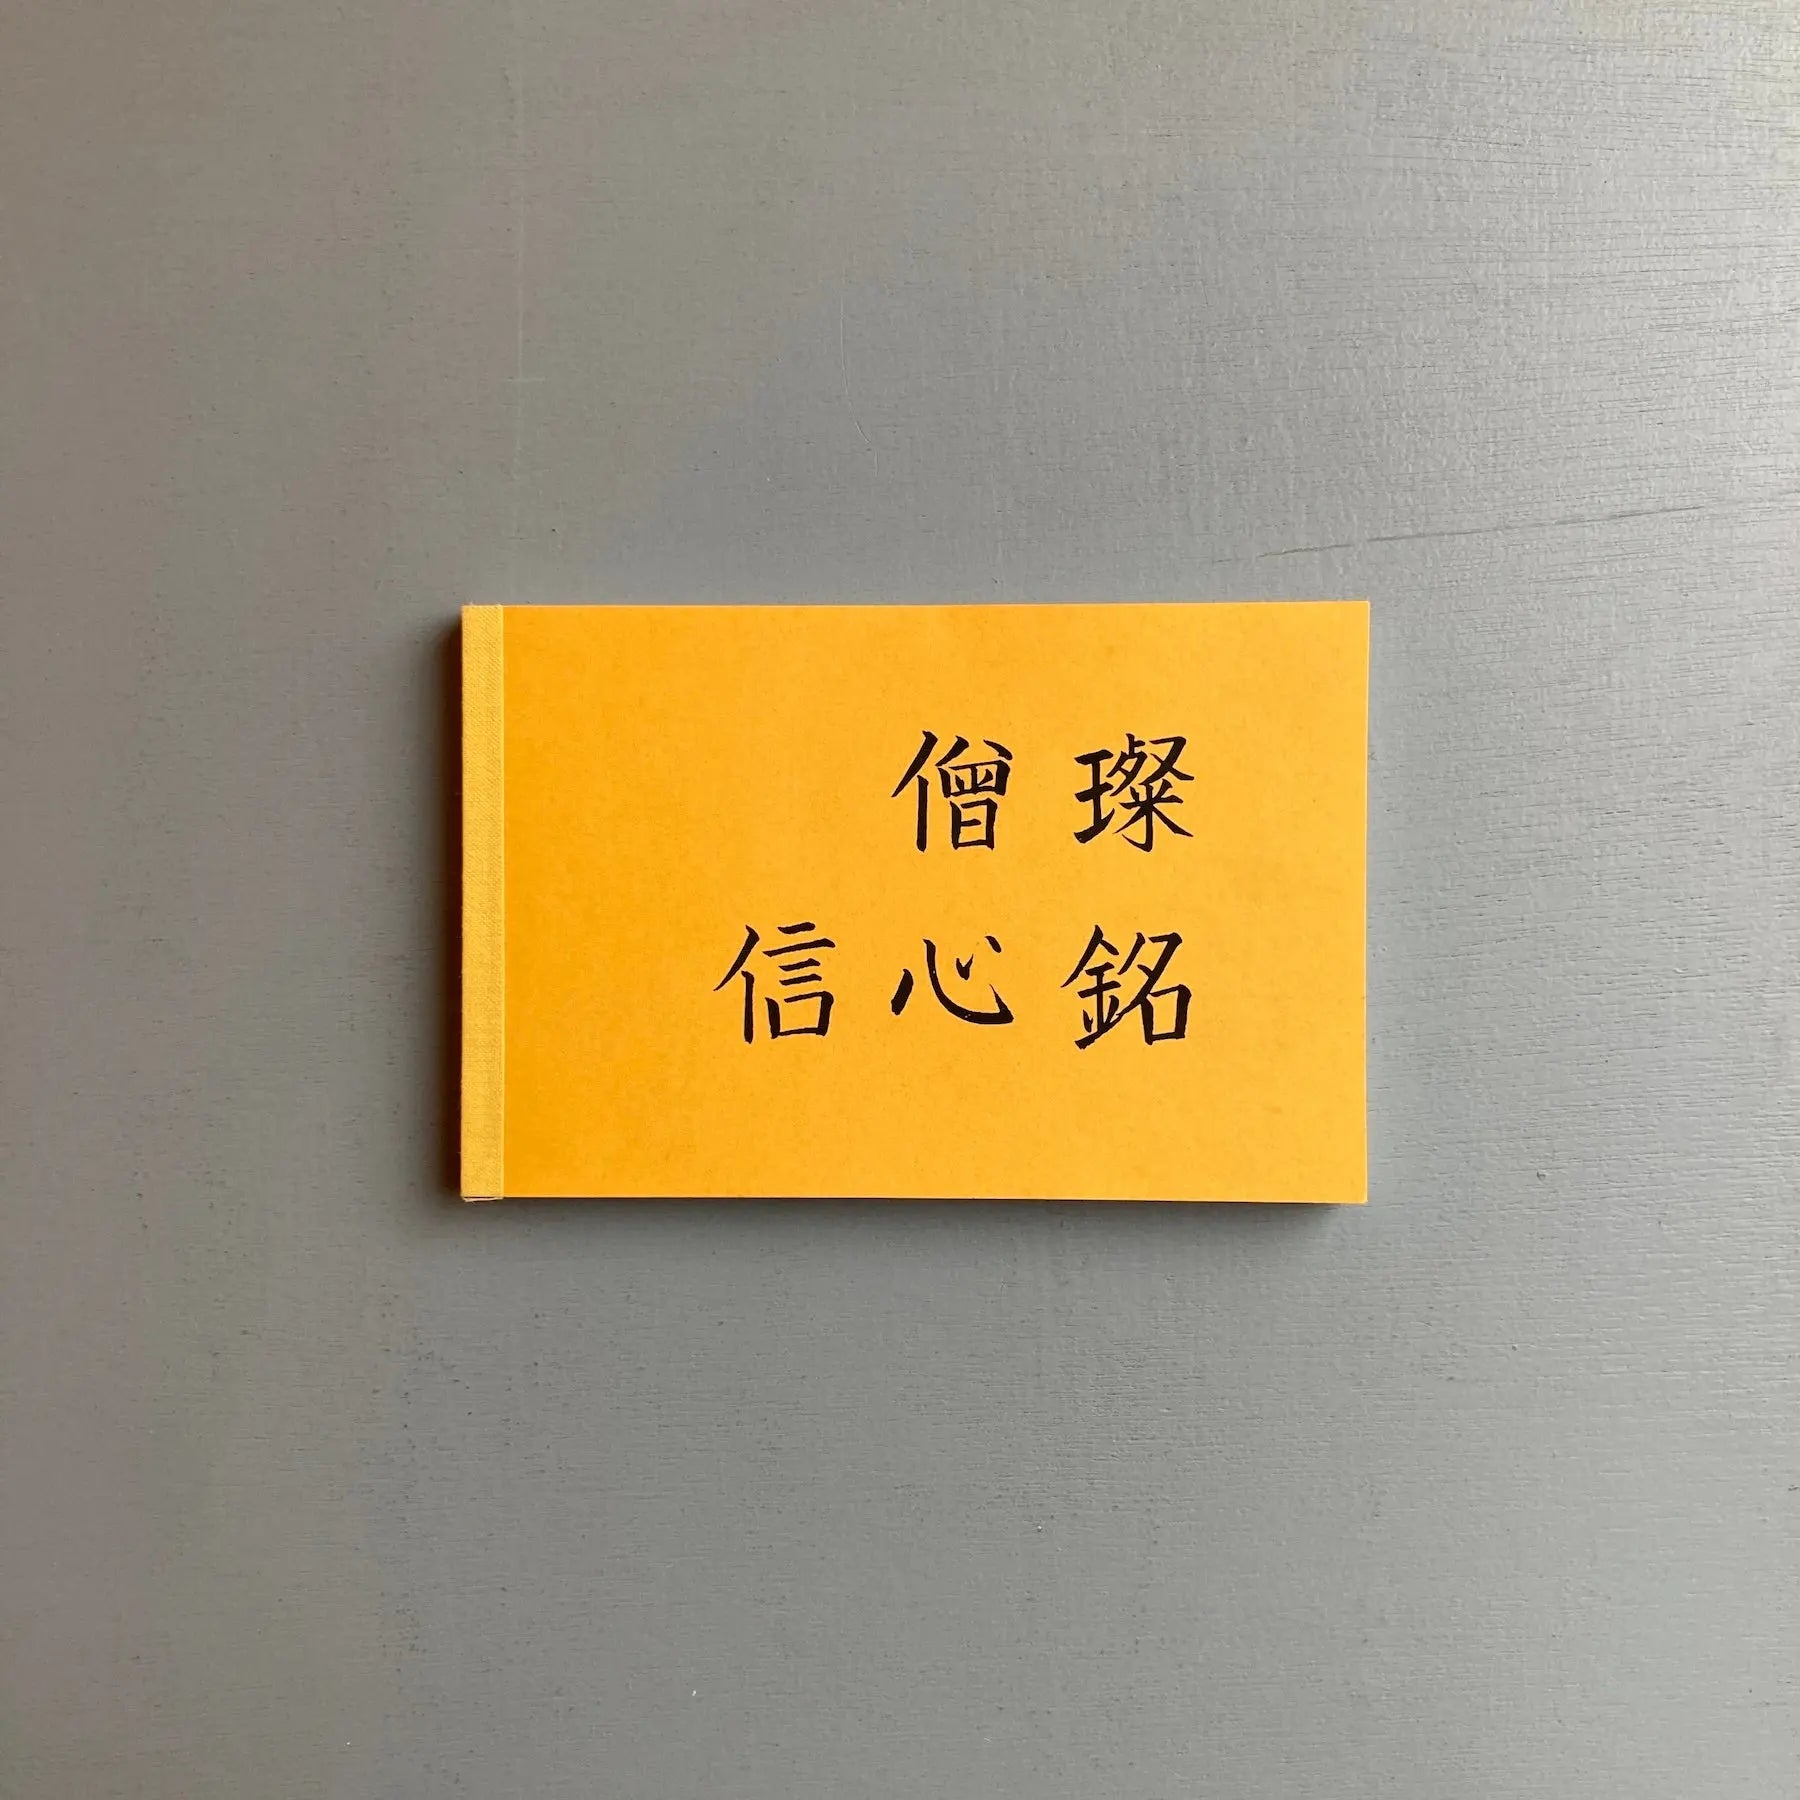 僧璨
信心銘